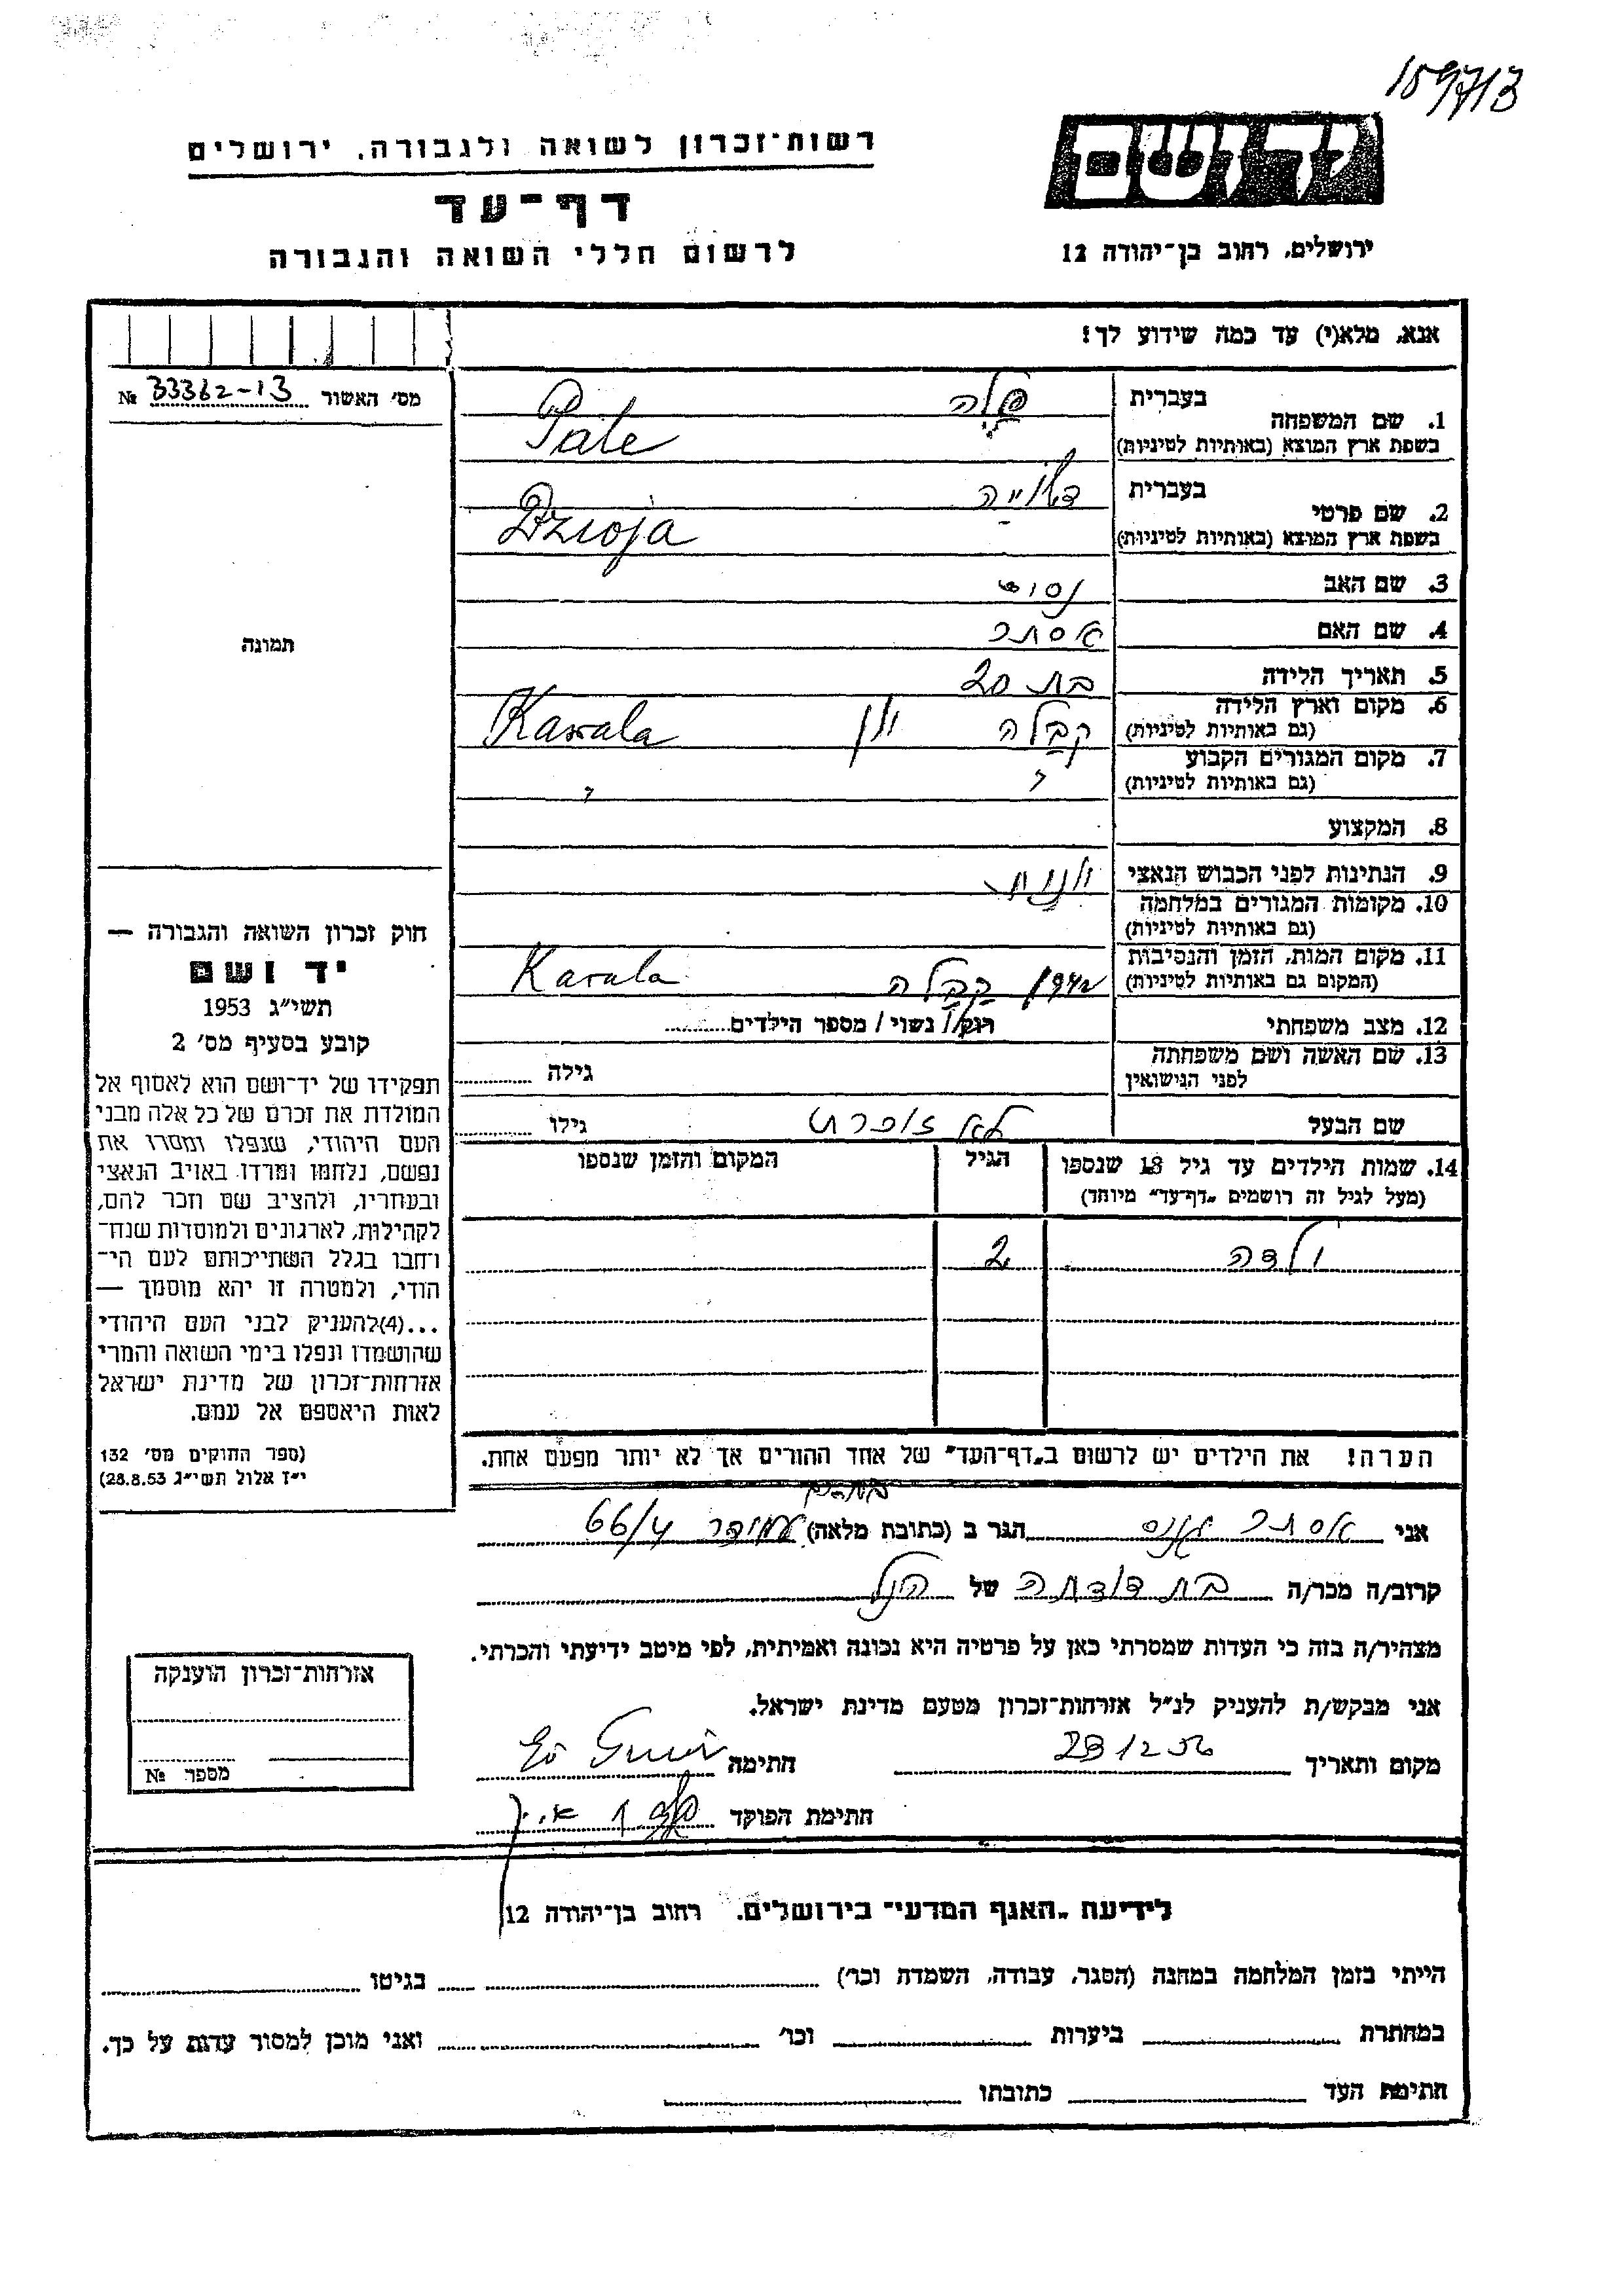 159713
יד ושם
ירושלים, רחוב בן־יהודה 12
רשות־זכרון לשואה ולגבורה, ירושלים
דף־עד
לרשום חללי השואה והגבורה
אנא, מלא(י) עד כמה שידוע לך!
מס׳ האשור № 33362-13
תמונה
1. שם המשפחה
בעברית
בשפת ארץ המוצא (באותיות לטיניות)
Pate
2. שם פרטי
בעברית
בשפת ארץ המוצא (באותיות לטיניות)
Dzioja
3. שם האב נסים
4. שם האם אסתר
5. תאריך הלידה בת 20
6. מקום וארץ הלידה
(גם באותיות לטיניות)
קבלה יון Kawala
7. מקום המגורים הקבוע
(גם באותיות לטיניות)
8. המקצוע
9. הנתינות לפני הכבוש הנאצי יונית
10. מקומות המגורים במלחמה
(גם באותיות לטיניות)
11. מקום המות, הזמן והנסיבות
(המקום גם באותיות לטיניות)
קבלה Kavala
12. מצב משפחתי רוק/ נשוי / מספר הילדים
13. שם האשה ושם משפחתה
לפני הנישואין
גילה
שם הבעל גילו
14. שמות הילדים עד גיל 18 שנספו
(מעל לגיל זה רושמים „דף־עד״ מיוחד)
הגיל
המקום והזמן שנספו
ילדה 2
הערה! את הילדים יש לרשום ב„דף־העד״ של אחד ההורים אך לא יותר מפעם אחת.
חוק זכרון השואה והגבורה —
יד ושם
תשי״ג 1953
קובע בסעיף מס׳ 2
תפקידו של יד־ושם הוא לאסוף אל
המולדת את זכרם של כל אלה מבני
העם היהודי, שנפלו ומסרו את
נפשם, נלחמו ומרדו באויב הנאצי
ובעוזריו, ולהציב שם וזכר להם,
לקהילות, לארגונים ולמוסדות שנח־
רחבו בגלל השתייכותם לעם הי־
הודי, ולמטרה זו יהא מוסמך —
...(4)להעניק לבני העם היהודי
שהושמדו ונפלו בימי השואה והמרי
אזרחות־זכרון של מדינת ישראל
לאות היאספם אל עמם.
(ספר החוקים מס׳ 132
י״ז אלול תשי״ג 28.8.53)
אני אסתר הגר ב (כתובת מלאה) 66/4
קרוב/ה מכר/ה בת דודתה של הנ״ל
מצהיר/ה בזה כי העדות שמסרתי כאן על פרטיה היא נכונה ואמיתית, לפי מיטב ידיעתי והכרתי.
אני מבקש/ת להעניק לנ״ל אזרחות־זכרון מטעם מדינת ישראל.
מקום ותאריך 23 12 56 חתימה
חתימת הפוקד
אזרחות־זכרון הוענקה
מספר №
לידיעת „האגף המדעי״ בירושלים. רחוב בן־יהודה 12
הייתי בזמן המלחמה במחנה (הסגר, עבודה, השמדה וכו׳) בגיטו
במחתרת ביערות וכו׳ ואני מוכן למסור עדות על כך.
חתימת העד כתובתו